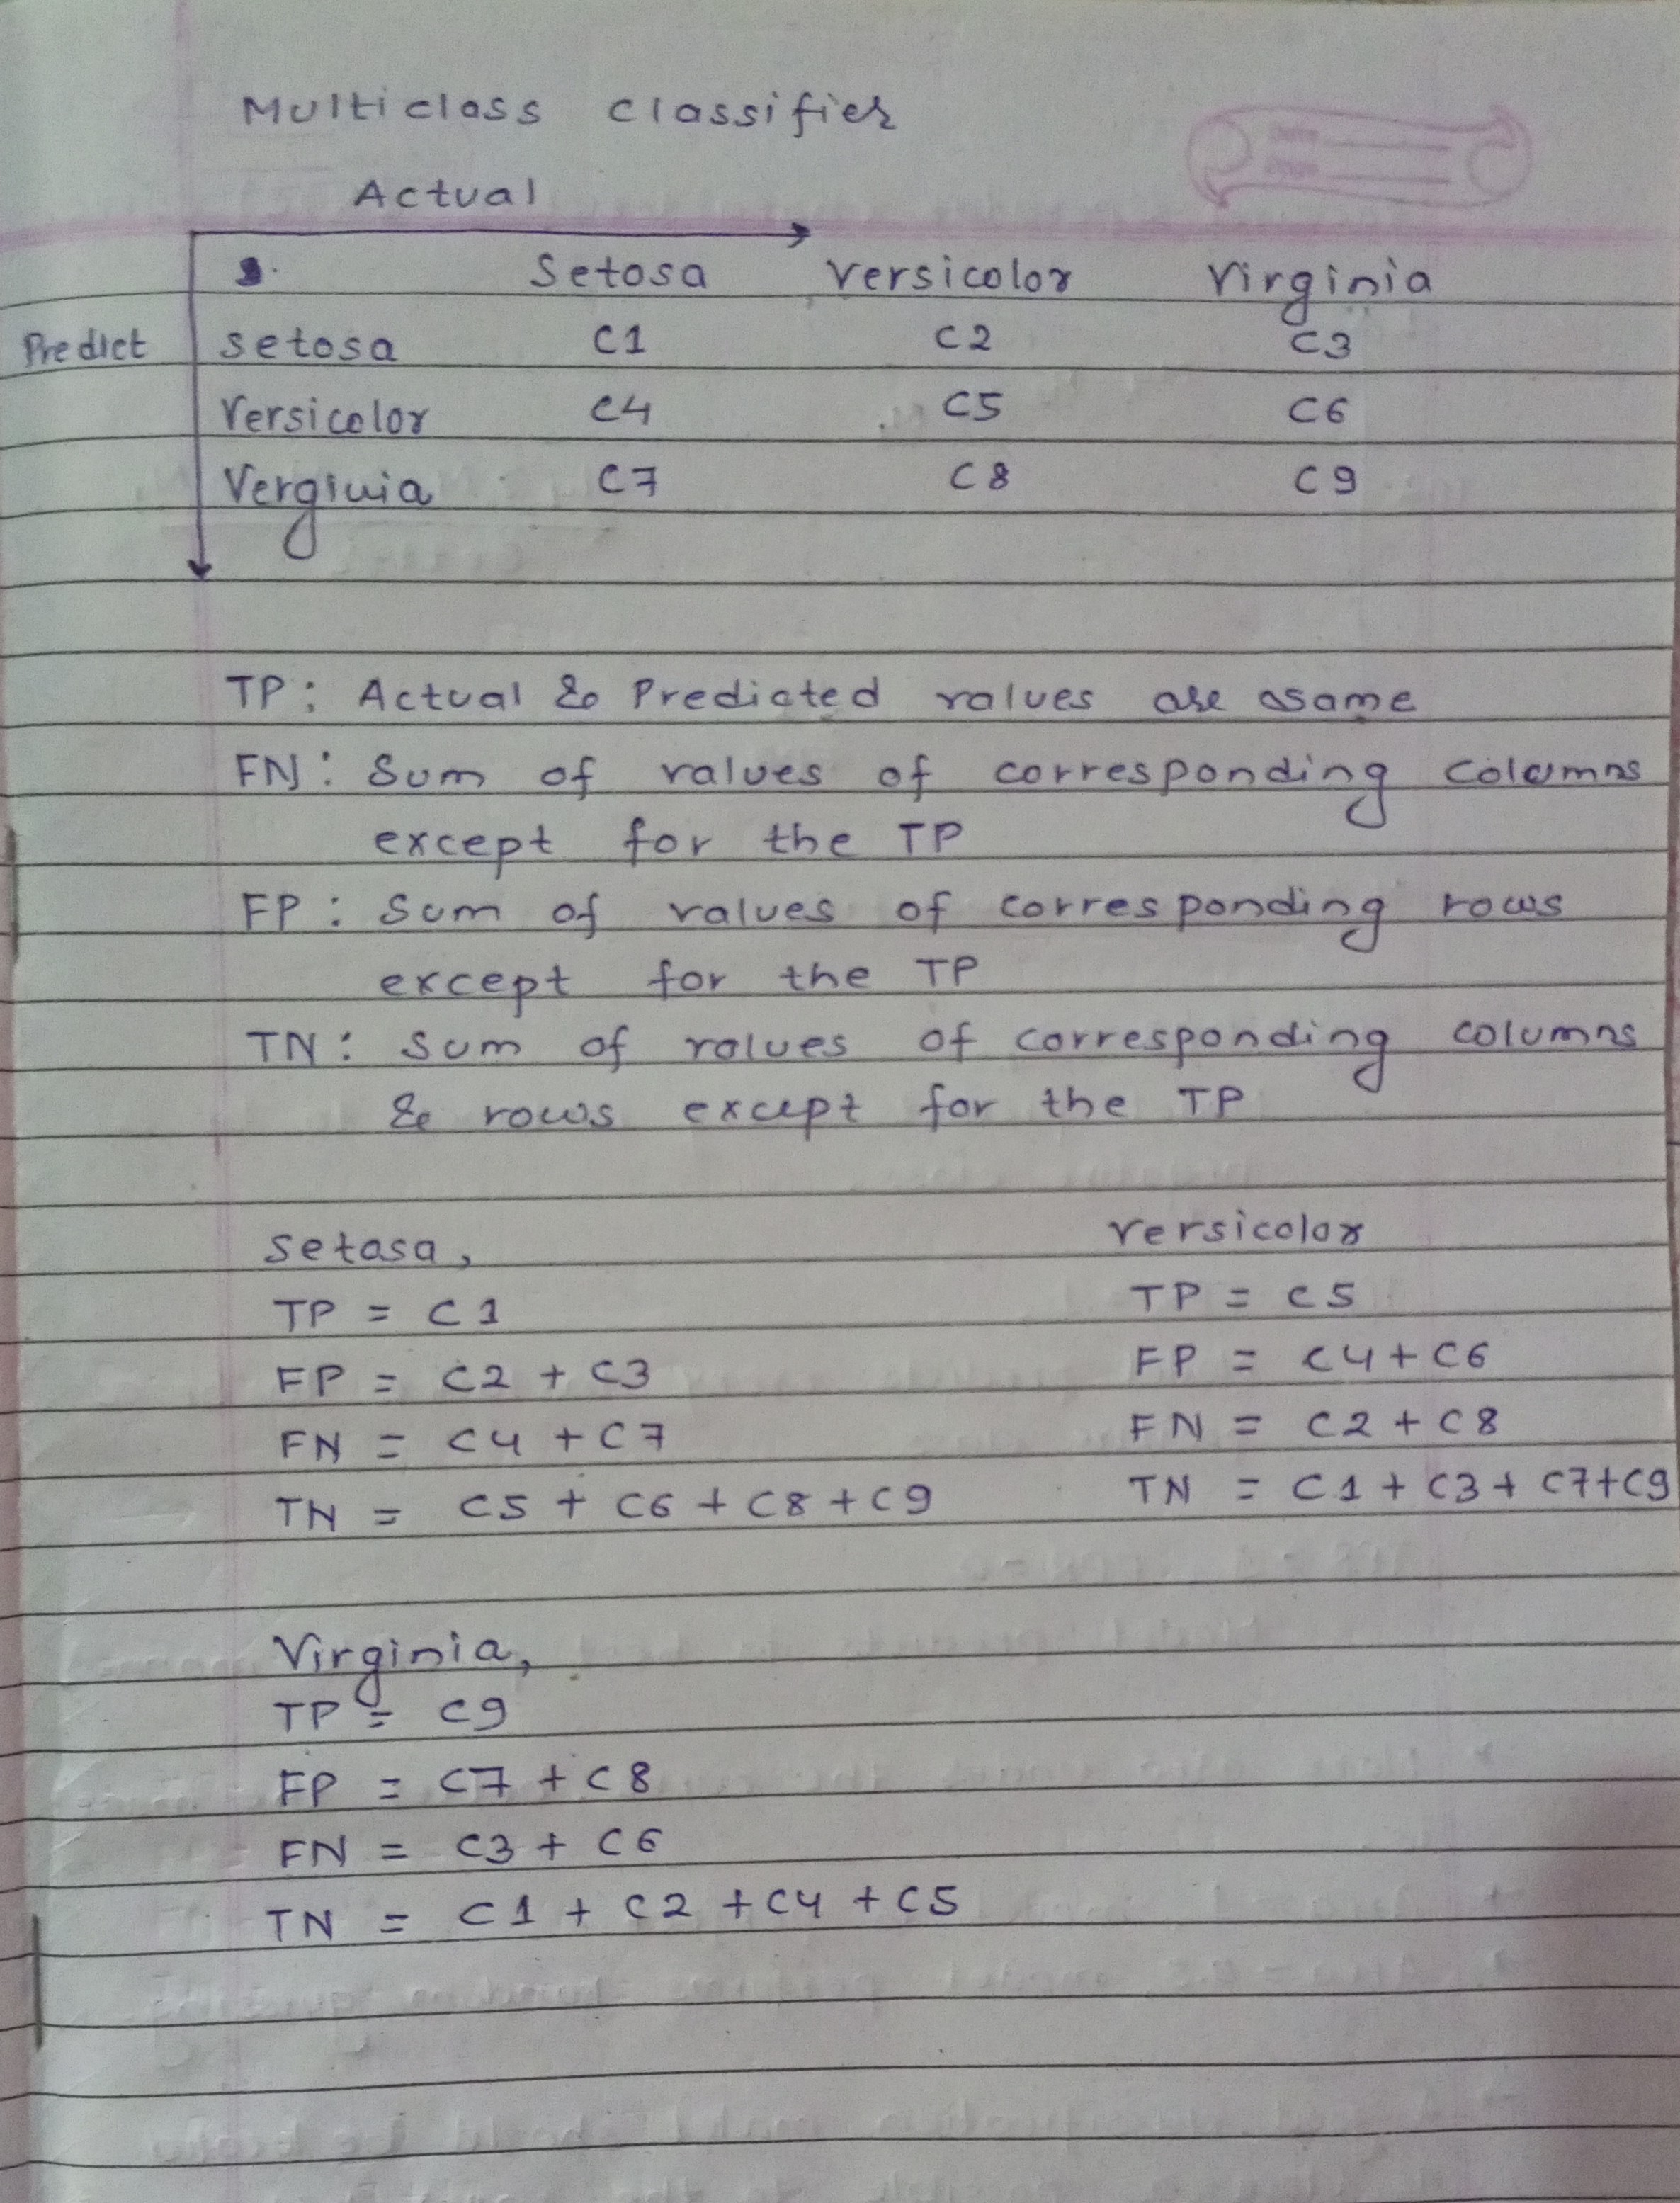 Multiclass classifier
Date
Page
Actual
Setosa versicolor virginia
Predict setosa C1 C2 C3
versicolor C4 C5 C6
Verginia C7 C8 C9
TP: Actual & Predicted values are same
FN: Sum of values of corresponding columns
except for the TP
FP: Sum of values of corresponding rows
except for the TP
TN: Sum of values of corresponding columns
& rows except for the TP
setosa, versicolor
TP = C1 TP = C5
FP = C2 + C3 FP = C4 + C6
FN = C4 + C7 FN = C2 + C8
TN = C5 + C6 + C8 + C9 TN = C1 + C3 + C7 + C9
Virginia,
TP = C9
FP = C7 + C8
FN = C3 + C6
TN = C1 + C2 + C4 + C5